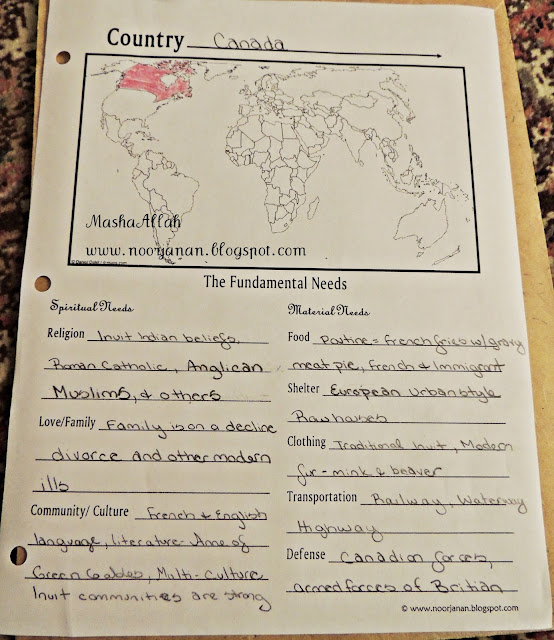 Country Canada
MashaAllah
www.noorjanan.blogspot.com
The Fundamental Needs
Spiritual Needs
Religion Inuit Indian beliefs,
Roman Catholic, Anglican
Muslims, & others
Love/Family Family is on a decline
divorce and other modern
ills
Community/ Culture French & English
language, literature - Anne of
Green Gables, Multi-Culture
Inuit communities are strong
Material Needs
Food Poutine = French fries w/ gravy
meat pie, French & Immigrant
Shelter European urban style
Rowhouses
Clothing Traditional Inuit, Modern
fur - mink & beaver
Transportation Railway, Waterway
Highway
Defense Canadian forces,
armed forces of Britian
© www.noorjanan.blogspot.com